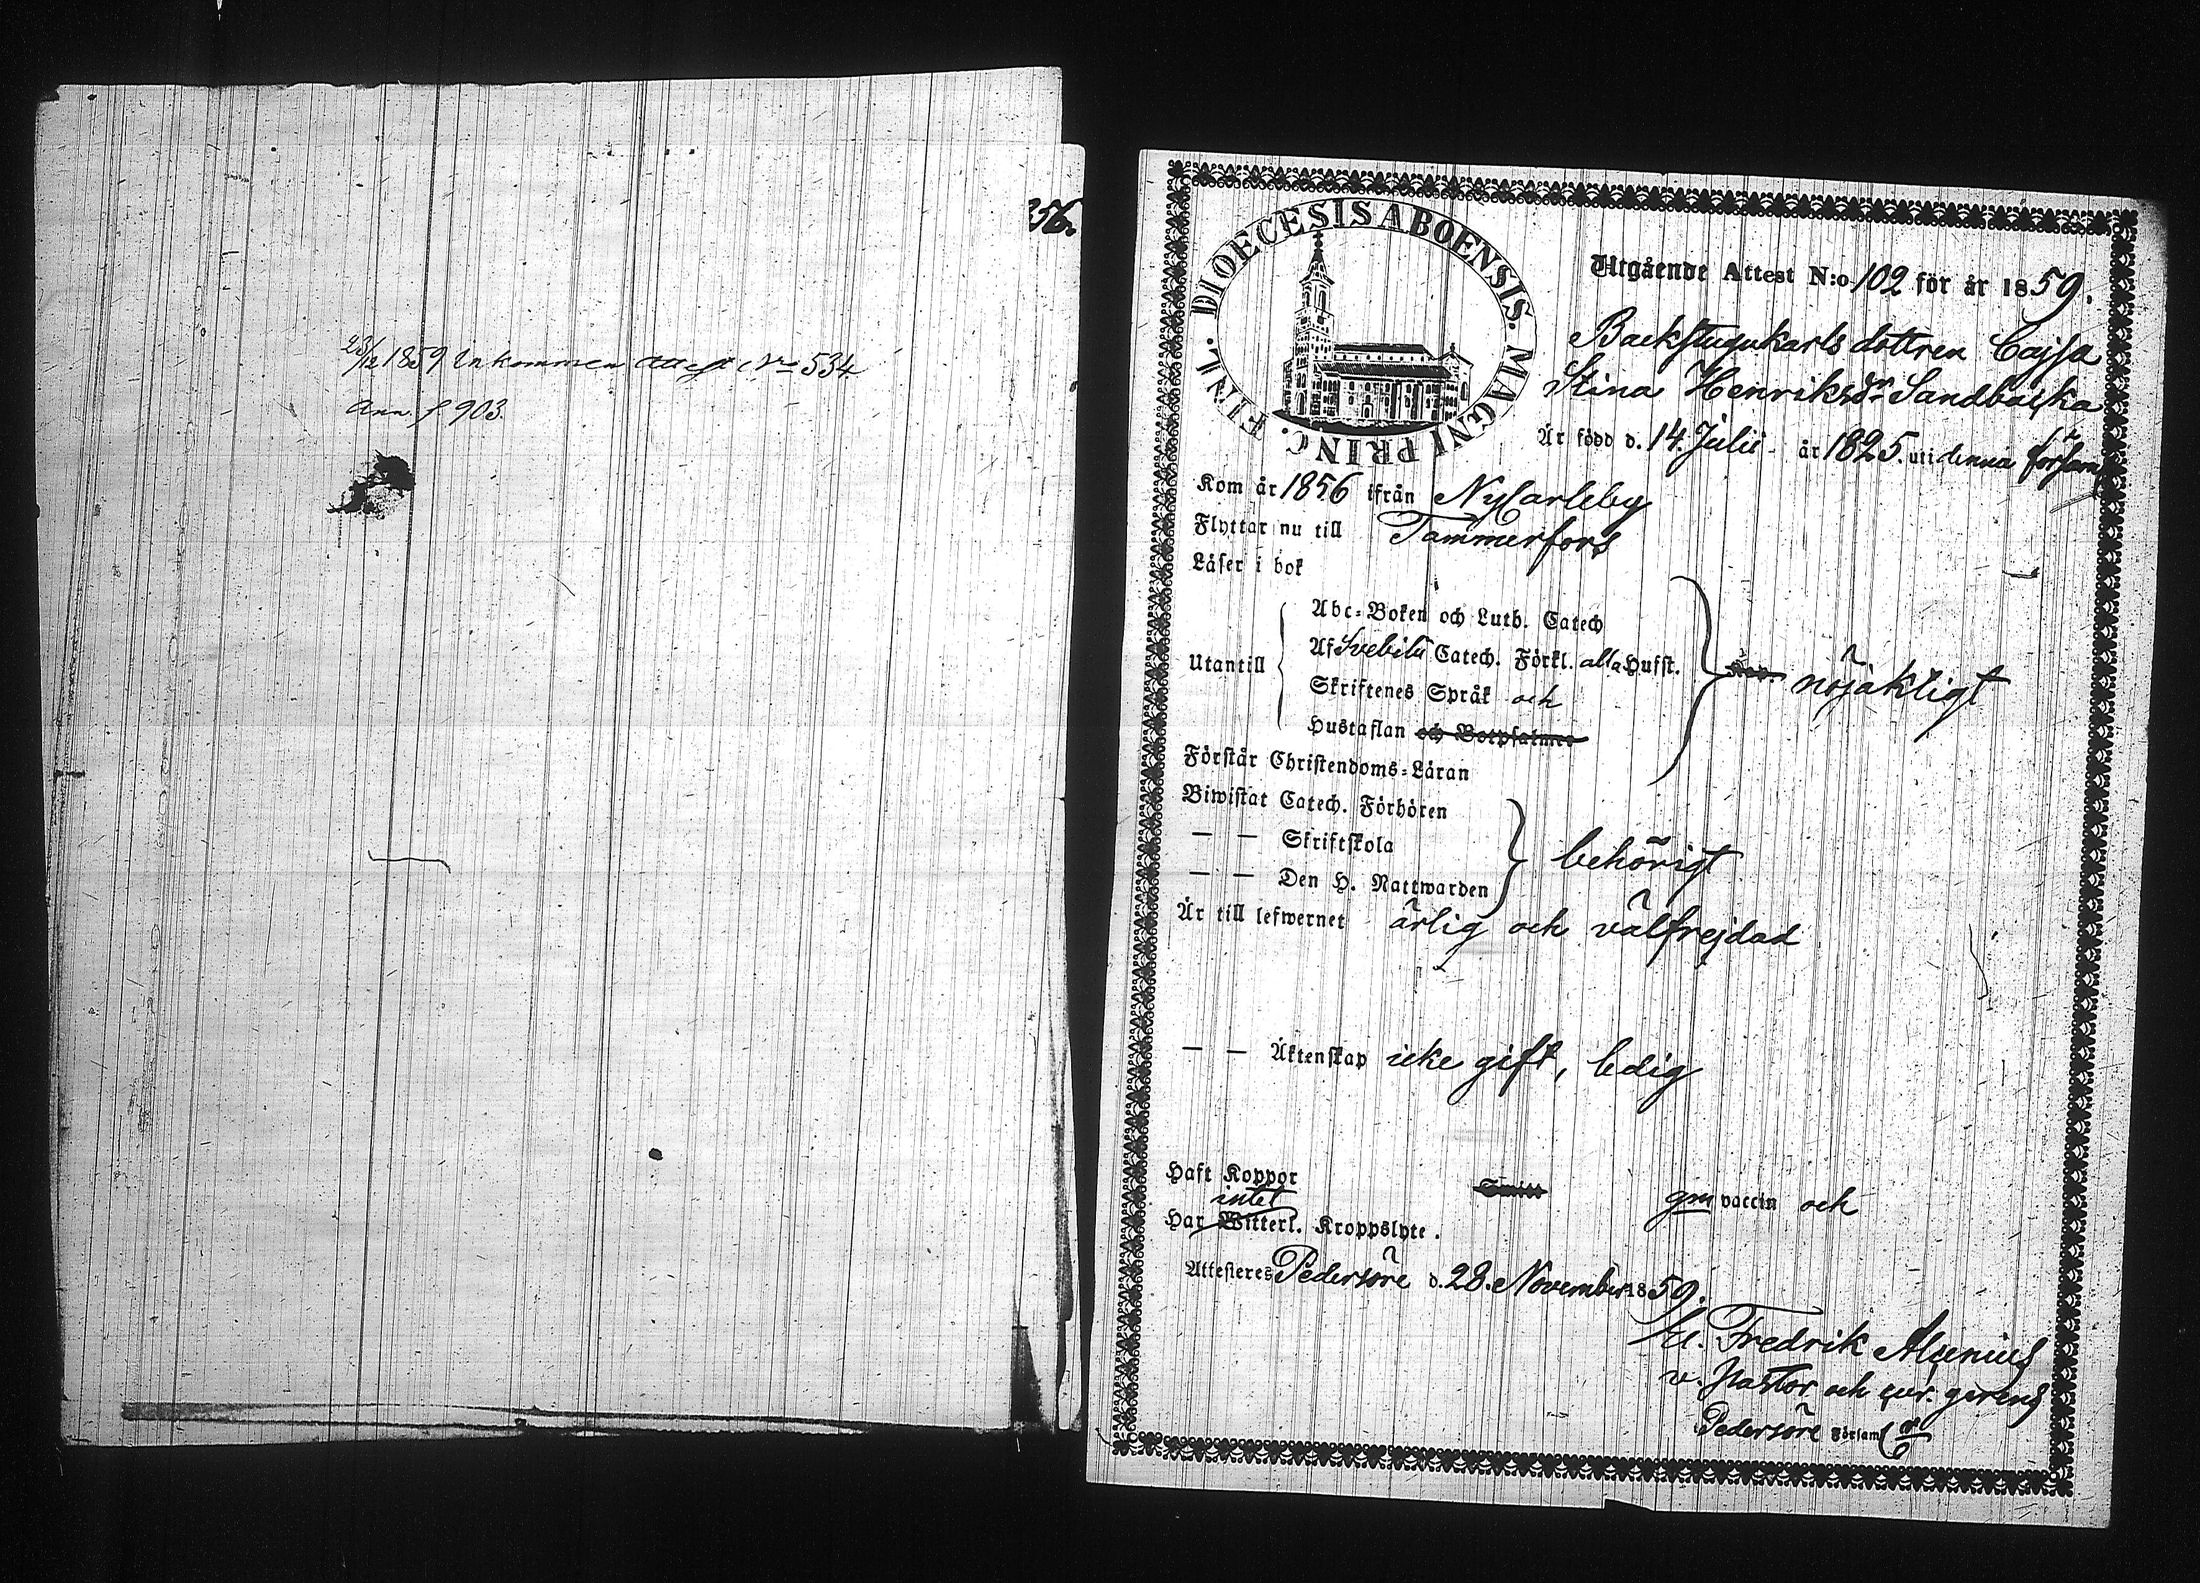 256.
23/12 1859 Inkommen Attest No 534.
Ann. f 903.
DIOECESIS ABOENSIS. MAGNI PRINC. FINL.
Utgående Attest N:o 102 för år 1859.
Backstugukarls dottren Cajsa
Stina Henriksdr Sandbacka
Är född d. 14. Julii år 1825. uti denna församl
Kom år 1856 ifrån NyCarleby
Flyttar nu till Tammerfors
Läser i bok
Abc-Boken och Luth. Catech
Utantill Af Svebilii Catech. Förkl. alla Hufst. nöjaktigt
Skriftenes Språk och
Hustaflan och Botpsalmer
Förstår Christendoms-Läran
Biwistat Catech. Förhören
— — Skriftskola behörigt
— — Den H. Nattwarden
Är till lefwernet ärlig och välfrejdad
— — Äktenskap icke gift, ledig
Haft Koppor Smitt gm vaccin och
intet
Har Witterl. Kroppslyte.
Attesteres Pedersöre d. 28. November 1859.
Fredrik
v. Pastor och
Pedersöre Församl